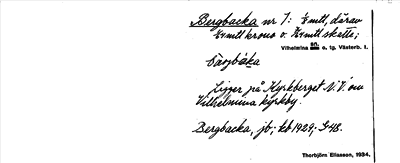 Bergbacka nr 1: 2 mtl, därav
2 mtl krono o. 2 mtl skatte;
Vilhelmina sn. o. tg. Västerb. l.
Ligger på Kyrkberget N.V. om
Vilhelmina kyrkby.
Bergbacka, jb; kb 1929; G 48.
Thorbjörn Eliasson, 1934.